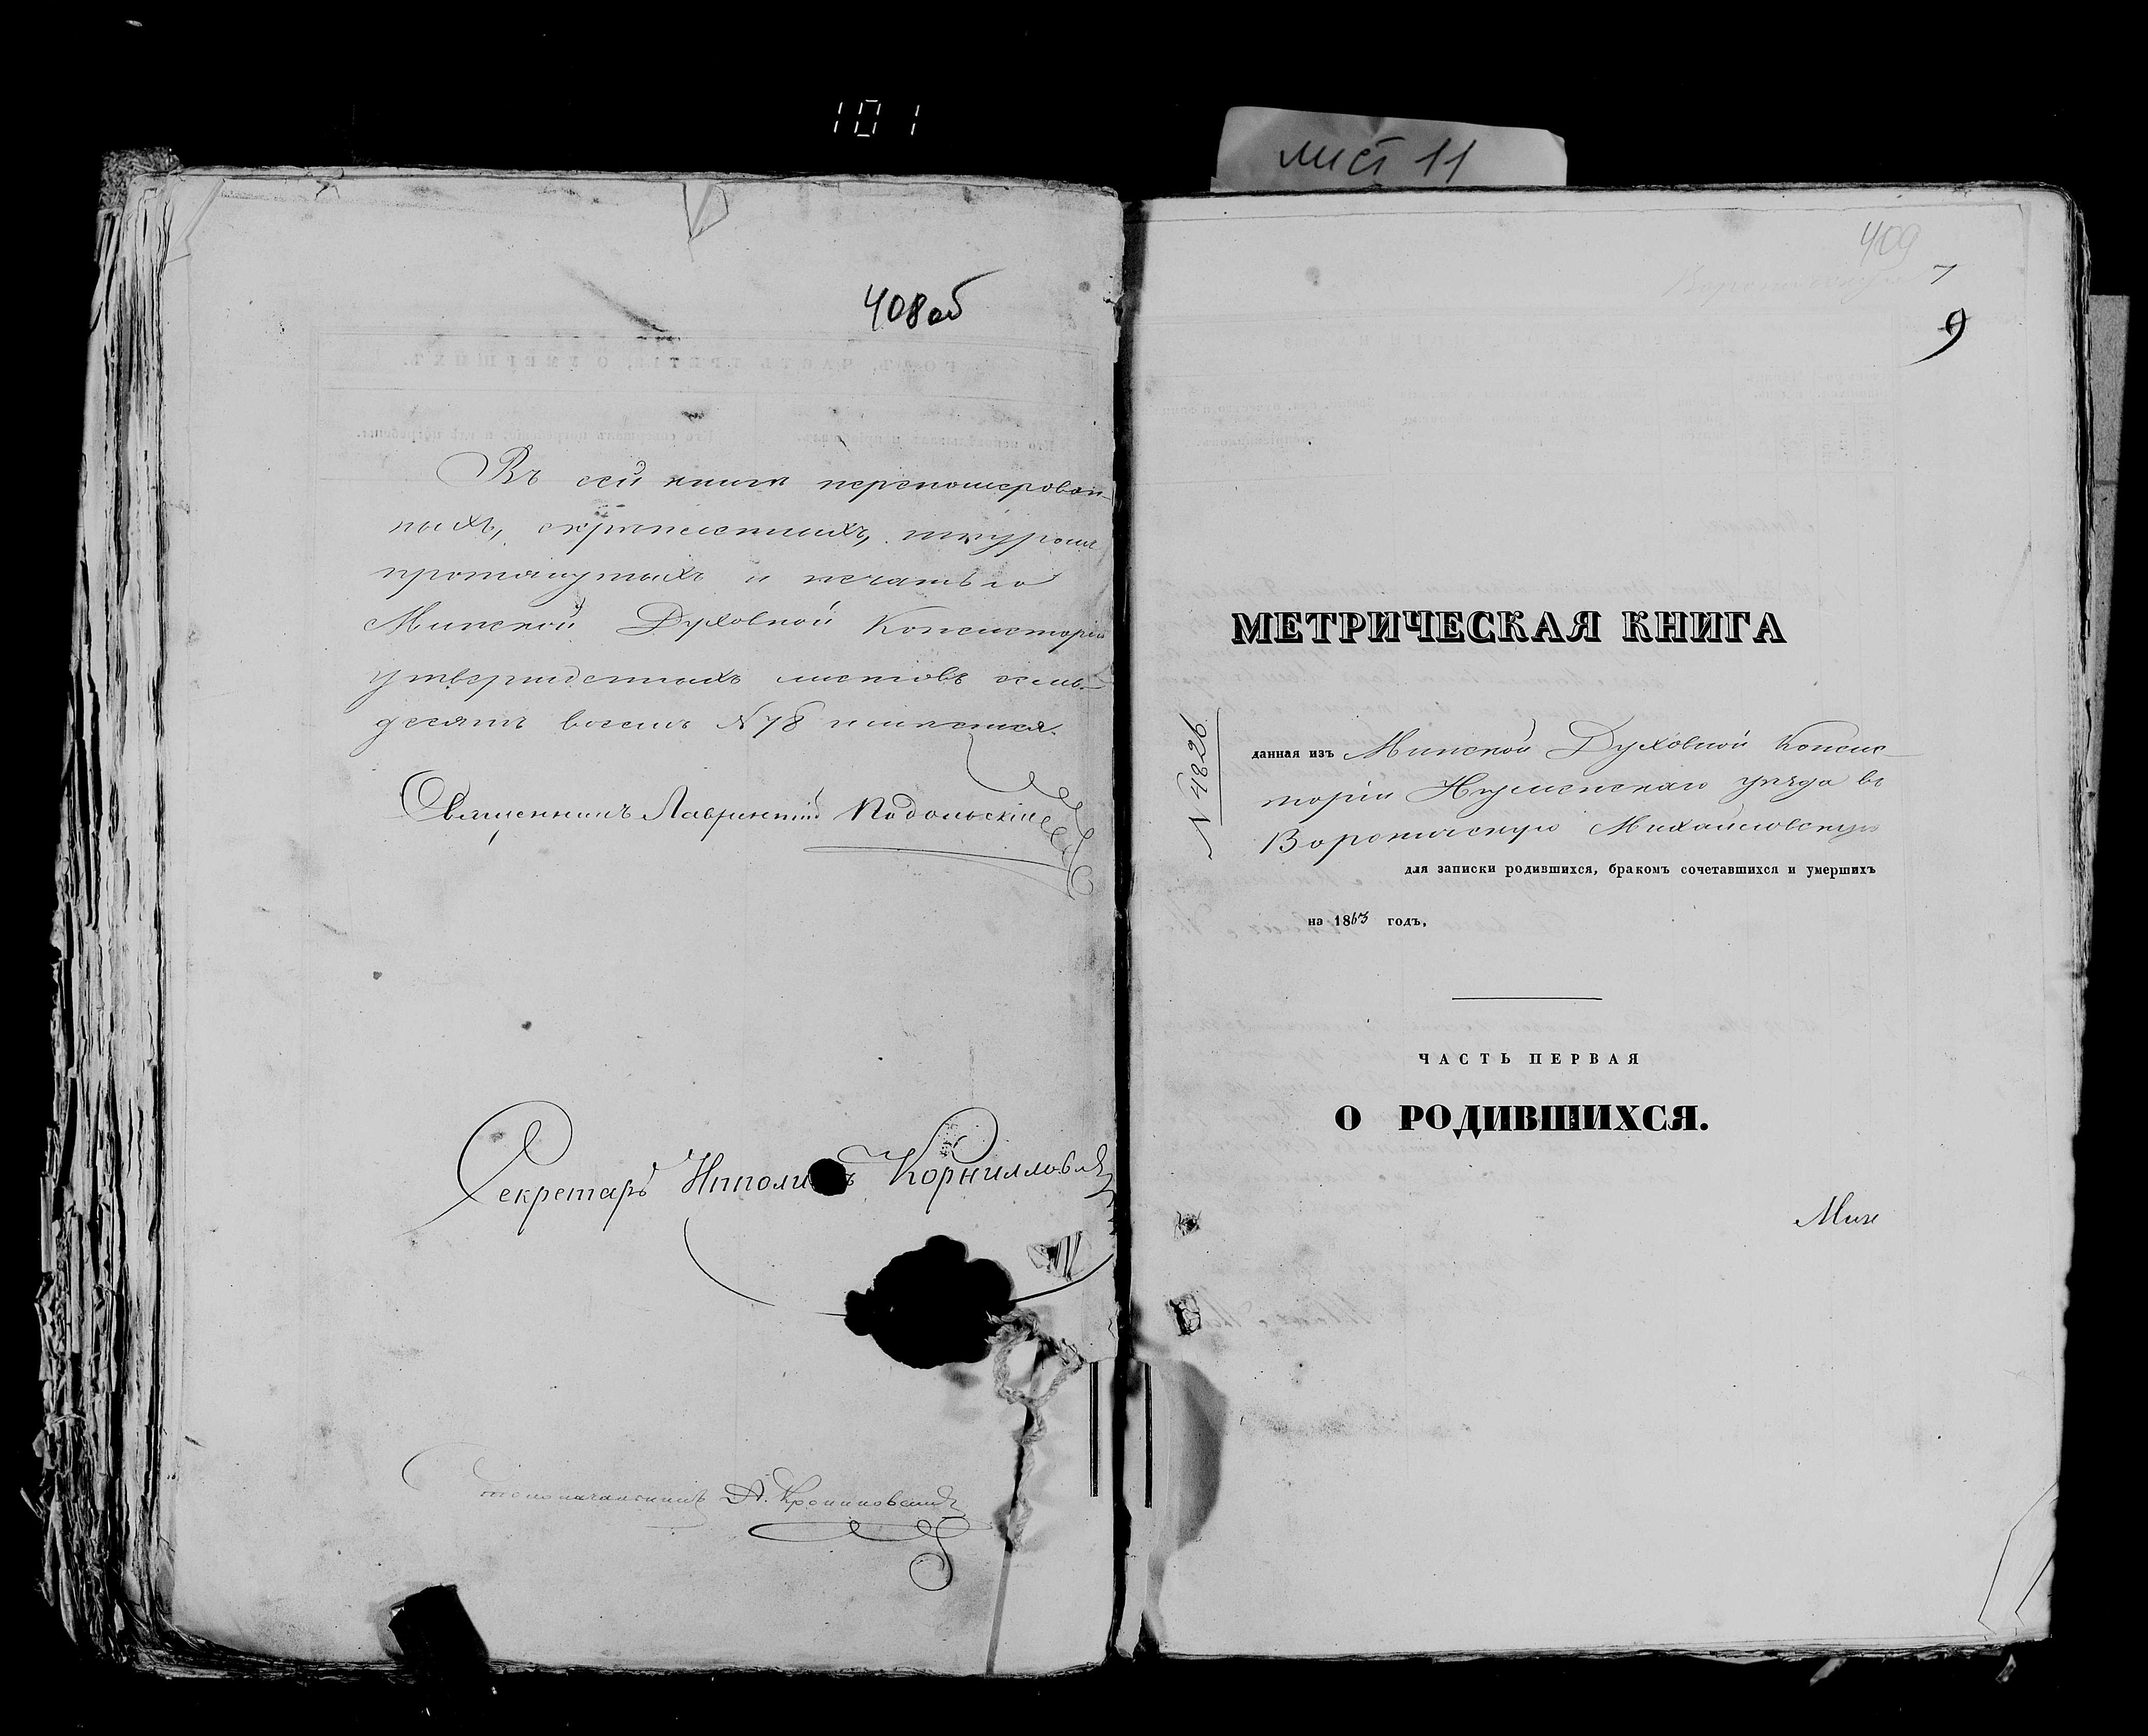 101
лист 11
408об
Въ сей книгѣ перенумерован-
ныхъ, скрѣпленныхъ, шнуромъ
протянутыхъ и печатью
Минской Духовной Консисторіи
утвержденныхъ листовъ семь-
десятъ восемь N 78 имѣется.
Священникъ Лаврентій Подольскій
Секретарь Иполи ъ
409
7
9
МЕТРИЧЕСКАЯ КНИГА
N 4826
данная изъ Минской Духовной Консис-
торіи Игуменскаго уѣзда въ
Михайловскую
для записки родившихся, бракомъ сочетавшихся и умершихъ
на 1863 годъ,
ЧАСТЬ ПЕРВАЯ
О РОДИВШИХСЯ.
Мин